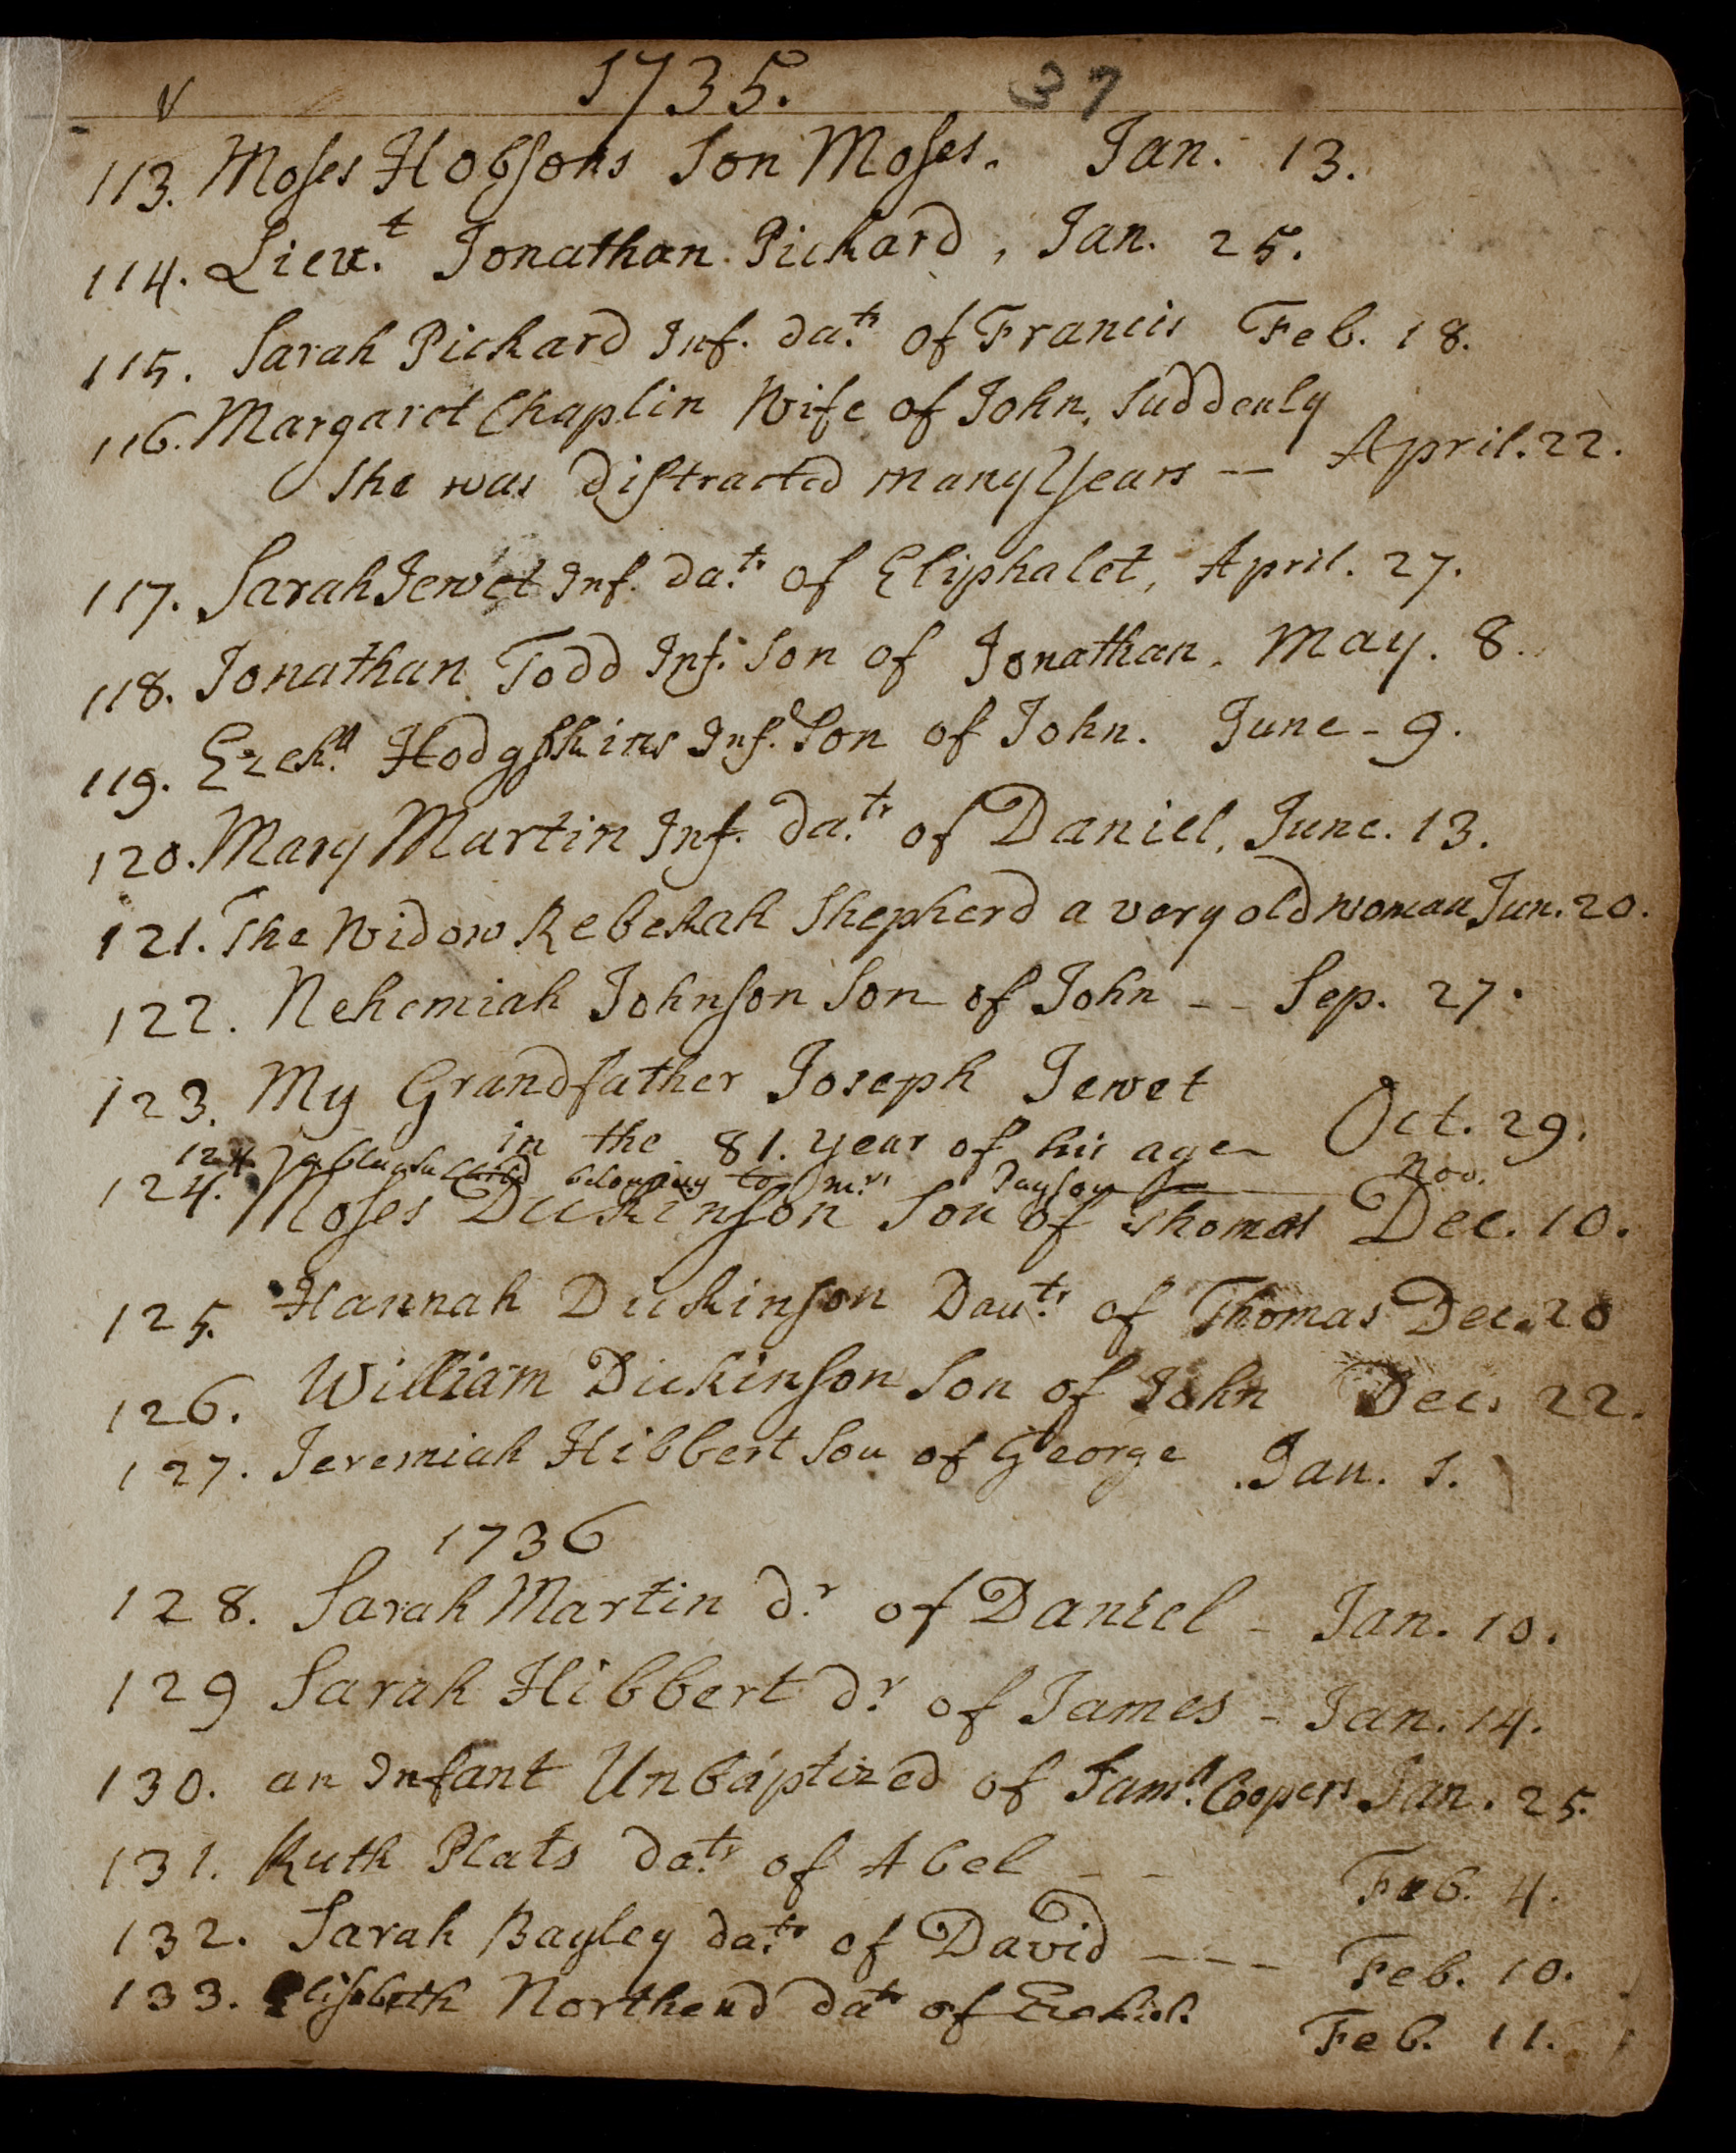 1735. 37
113. Moses Hobsons Son Moses. Jan. 13.
114. Lieut. Jonathan Pickard, Jan. 25.
115. Sarah Pickard Inf. datr. of Francis Feb. 18.
116. Margaret Chaplin Wife of John, Suddenly
She was distracted many Years -- April. 22.
117. Sarah Jewet Inf. datr. of Eliphalet, April. 27.
118. Jonathan Todd Inf. Son of Jonathan. May. 8.
119. Ezekll. Hodgskins Inf. Son of John. June - 9.
120. Mary Martin Inf. datr. of Daniel, June. 13.
121. The Widow Rebekah Shepherd a very old woman Jun. 20.
122. Nehemiah Johnson Son of John -- Sep. 27.
123. My Grandfather Joseph Jewet
in the 81. year of his age - Oct. 29.
124. a child belonging to mrs. Payson Nov.
124. Moses Dickinson Son of Thomas Dec. 10.
125. Hannah Dickinson Dautr. of Thomas Dec. 20
126. William Dickinson Son of John Dec. 22.
127. Jeremiah Hibbert Son of George Jan. 1.
1736
128. Sarah Martin dr. of Daniel - Jan. 10.
129 Sarah Hibbert dr. of James - Jan. 14.
130. an Infant Unbaptized of Samll. Coopers Jan. 25.
131. Ruth Plats datr. of Abel -- Feb. 4.
132. Sarah Bayley datr. of David --- Feb. 10.
133. Elisabeth Northend datr of Ezekiel. Feb. 11.